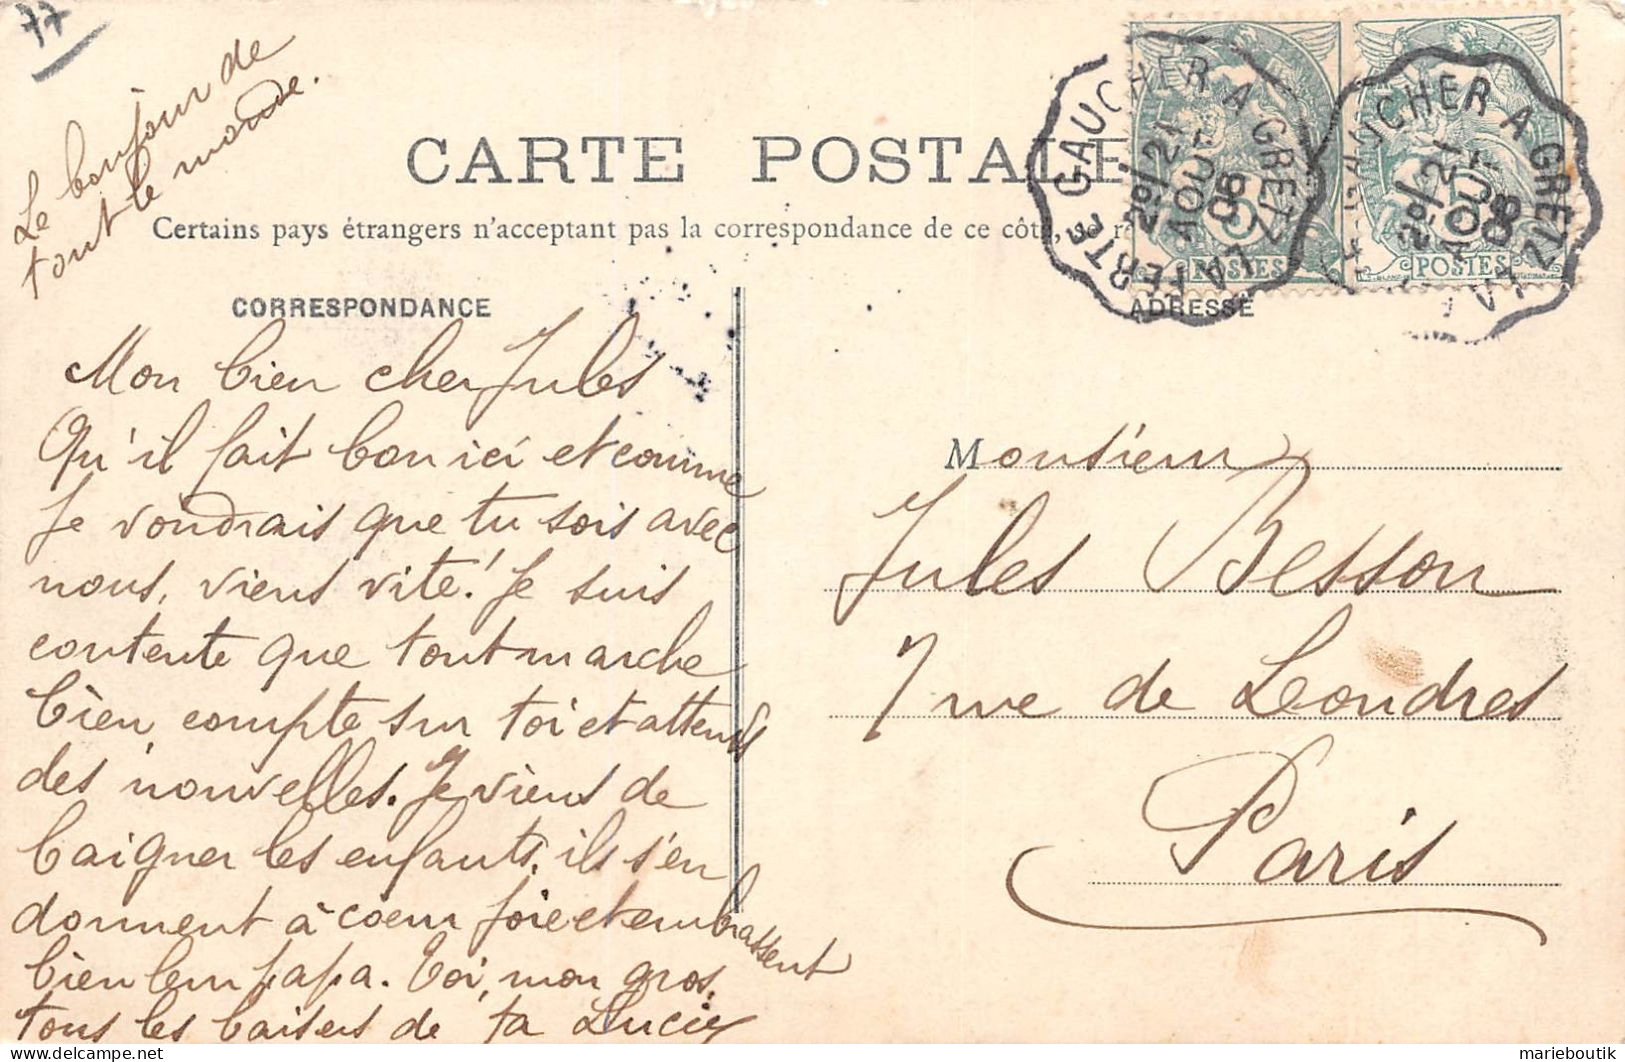 77
Le bonjour de
tout le monde.
CARTE POSTALE
Certains pays étrangers n'acceptant pas la correspondance de ce côté, se r
LA FERTE GAUCHER A GRETZ
2º/21
AOUT
08
POSTES
GAUCHER A GRETZ
2º/21
AOUT
08
POSTES
CORRESPONDANCE
ADRESSE
Mon bien cher Jules
Qu'il fait bon ici et comme
Je voudrais que tu sois avec
nous, viens vite! Je suis
contente que tout marche
bien, compte sur toi et attends
des nouvelles. Je viens de
baigner les enfants, ils s'en
donnent à coeur joie et embrassent
bien leur papa. Toi, mon gros,
tous les baisers de ta Lucie
Monsieur
Jules Besson
7 rue de Londres
Paris
delcampe.net
marieboutik